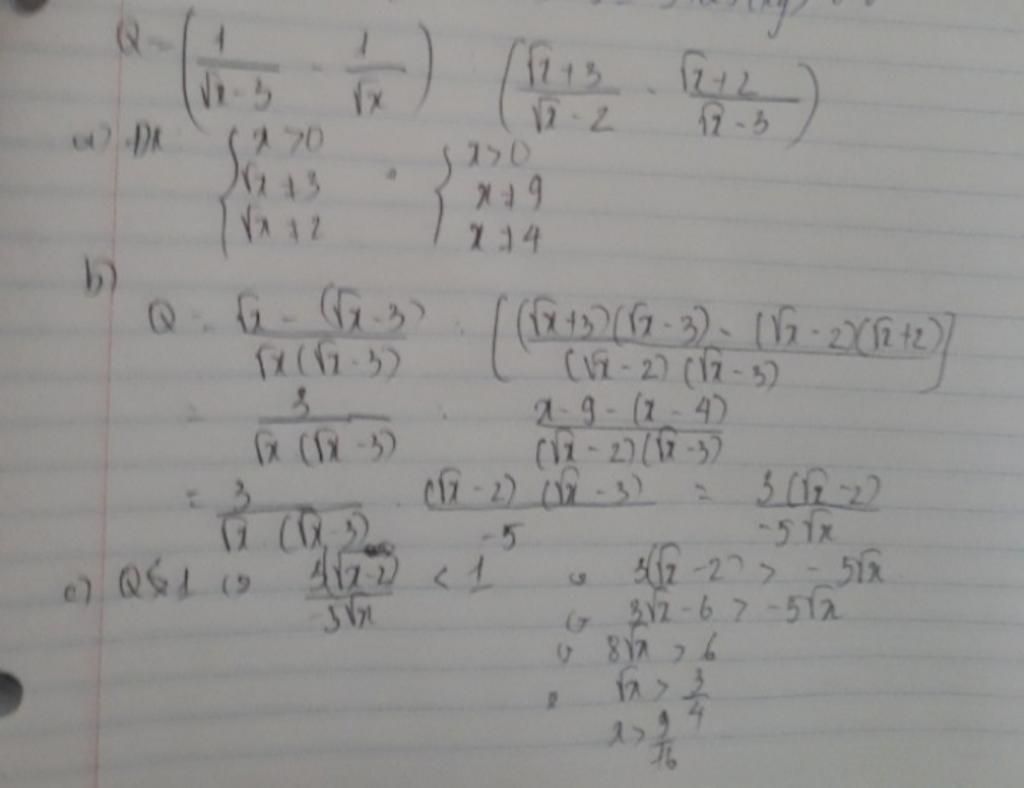 Q = (1/(√x - 3) - 1/√x) ((√x + 3)/(√x - 2) - (√x + 2)/(√x - 3))
a) ĐK: { x > 0 { x > 0
√x ≠ 3 x ≠ 9
√x ≠ 2 x ≠ 4
b)
Q = (√x - (√x - 3))/(√x(√x - 3)) : [((√x + 3)(√x - 3) - (√x - 2)(√x + 2))/((√x - 2)(√x - 3))]
= 3/(√x(√x - 3)) : (x - 9 - (x - 4))/((√x - 2)(√x - 3))
= 3/(√x (√x - 3)) . ((√x - 2)(√x - 3))/(-5) = 3(√x - 2)/(-5√x)
c) Q < 1 ⇔ 3(√x - 2)/(-5√x) < 1 ⇔ 3(√x - 2) > -5√x
⇔ 3√x - 6 > -5√x
⇔ 8√x > 6
√x > 3/4
x > 9/16